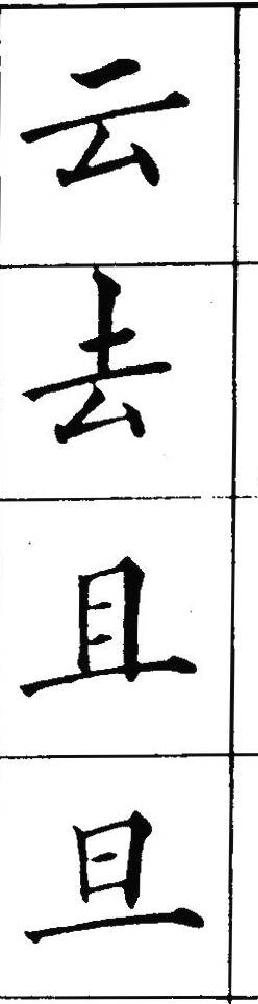 云
去
且
旦